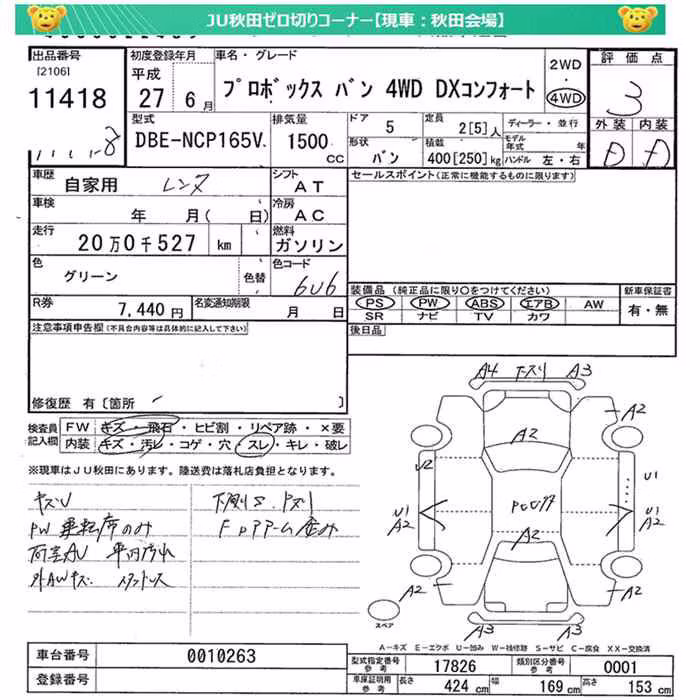 JU秋田ゼロ切りコーナー【現車：秋田会場】
出品番号
[2106]
11418
初度登録年月
平成
27 6月
車名・グレード
プロボックス バン 4WD DXコンフォート
2WD
・
4WD
評価点
3
外装 内装
D D
型式
DBE-NCP165V
排気量
1500
CC
ドア
5
定員
2[5]人
ディーラー・並行
形状
バン
積載
400[250]kg
モデル年式 年
ハンドル 左・右
車歴
自家用 レンタ
シフト
AT
セールスポイント(正常に機能するものに限ります)
車検
年 月( 日)
冷房
AC
走行
20万0千527 km
燃料
ガソリン
色
グリーン
色替
色コード
6U6
装備品 (純正品に限り○をつけてください)
PS PW ABS エアB AW
SR ナビ TV カワ
新車保証書
有・無
R券
7,440円
名変通知期限
月 日
注意事項申告欄(不具合内容等は具体的に記入して下さい)
後日品
修復歴 有[箇所 ]
検査員記入欄
FW キズ・飛石・ヒビ割・リペア跡・×要
内装 キズ・汚レ・コゲ・穴・スレ・キレ・破レ
※現車はJU秋田にあります。陸送費は落札店負担となります。
キズU
PW 運転席のみ
荷室AU 車内汚れ
外AWキズ スタッドレス
下廻りS
A4 下スリ A3
A2
A2
U2
U1
U1
A2
U1
A2
A2
A2
A2
A3 A3
スペア
A-キズ E-エクボ U-凹み W-補修跡 S-サビ C-腐食 XX-交換済
車台番号
0010263
登録番号
型式指定番号
参考
17826
類別区分番号
参考
0001
車庫証明用
参考
長さ
424 cm
幅
169 cm
高さ
153 cm